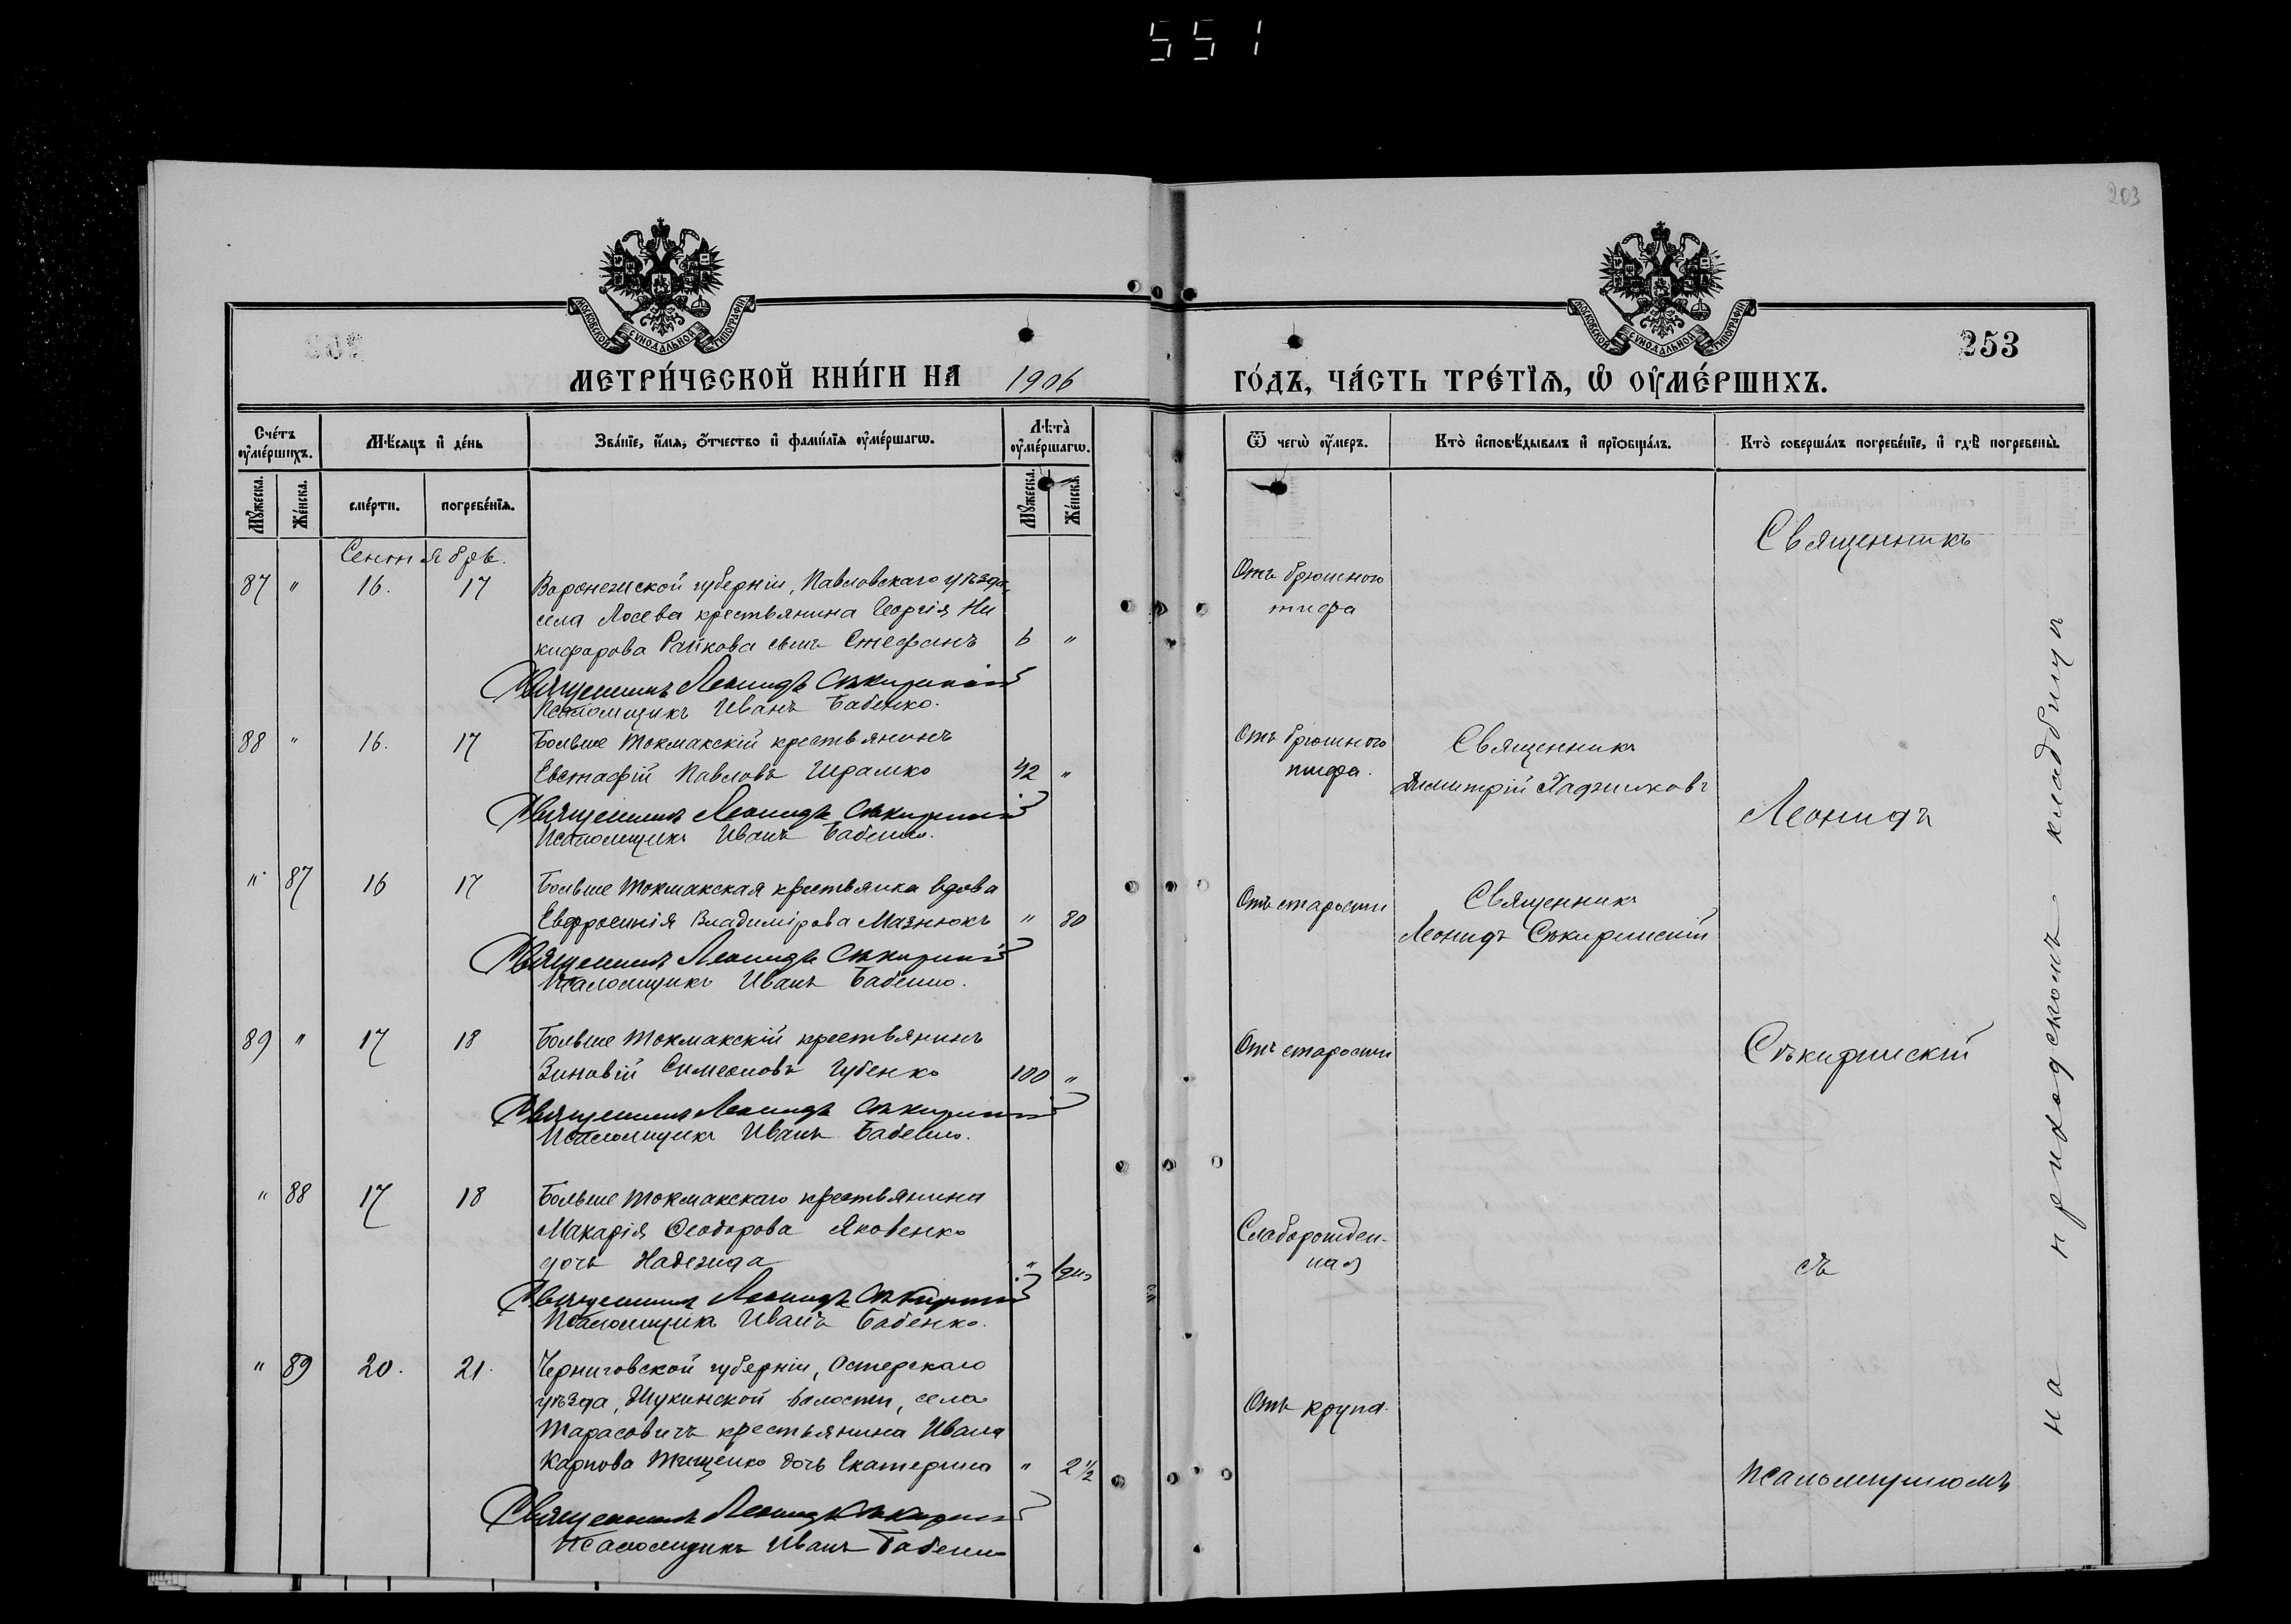 551
203
МОСКОВСКОЙ СѴНОДАЛЬНОЙ ТИПОГРАФІИ
МОСКОВСКОЙ СѴНОДАЛЬНОЙ ТИПОГРАФІИ
253
МЕТРИ́ЧЕСКОЙ КНИ́ГИ НА 1906 ГО́ДЪ, ЧА́СТЬ ТРЕ́ТЇѦ, Ѡ҆ ОУ҆МЕ́РШИХЪ.
Сче́тъ оу҆ме́ршихъ.
Мѣ́сяцъ и҆ де́нь
Зва́нїе, и҆́мѧ, ѻ҆́тчество и҆ фами́лїѧ оу҆ме́ршагѡ.
Лѣ̑та̀ оу҆ме́ршагѡ.
Ѿ чегѡ̀ оу҆́меръ.
Кто̀ и҆сповѣ́дывалъ и҆ прїѡбща́лъ.
Кто̀ соверша́лъ погребе́нїе, и҆ гдѣ̀ погребены̀.
Мꙋ́жеска.
Же́нска.
сме́рти.
погребе́нїѧ.
Мꙋ́жеска.
Же́нска.
Сентябрь.
Священникъ
87 " 16. 17 Воронежской губерніи, Павловскаго уѣзда, Отъ брюшного
села Лосева крестьянина Георгія Ни тифа
кифорова Райкова сынъ Стефанъ 6 "
Священникъ Леонидъ Сѣкиринскій
Псаломщикъ Иванъ Бабенко.
88 " 16. 17 Больше Токмакскій крестьянинъ Отъ брюшного Священникъ
Евстафій Павловъ Шрамко 42 " тифа. Димитрій
Священникъ Леонидъ Сѣкиринскій Леонидъ
Псаломщикъ Иванъ Бабенко.
" 87 16 17 Больше Токмакская крестьянка вдова Отъ старости Священникъ
Евфросинія Владимірова Мазнюкъ " 80 Леонидъ Сѣкиринскій
Священникъ Леонидъ Сѣкиринскій
Псаломщикъ Иванъ Бабенко.
89 " 17 18 Больше Токмакскій крестьянинъ Отъ старости Сѣкиринскій
Зиновій Симеоновъ Губенко 100 "
Священникъ Леонидъ Сѣкиринскій
Псаломщикъ Иванъ Бабенко.
" 88 17 18 Больше Токмакскаго крестьянина
Макарія Ѳеодорова Яковенко Слаборожден-
дочь Надежда " 1 дн. ная съ
Священникъ Леонидъ Сѣкиринскій
Псаломщикъ Иванъ Бабенко.
" 89 20. 21. Черниговской губерніи, Остерскаго
уѣзда, Жукинской волости, села Отъ крупа.
Тарасовичъ крестьянина Ивана
Карпова Тищенко дочь Екатерина " 2 1/2 псаломщикомъ
Священникъ Леонидъ Сѣкиринскій
Псаломщикъ Иванъ Бабенко
на приходскомъ кладбищѣ